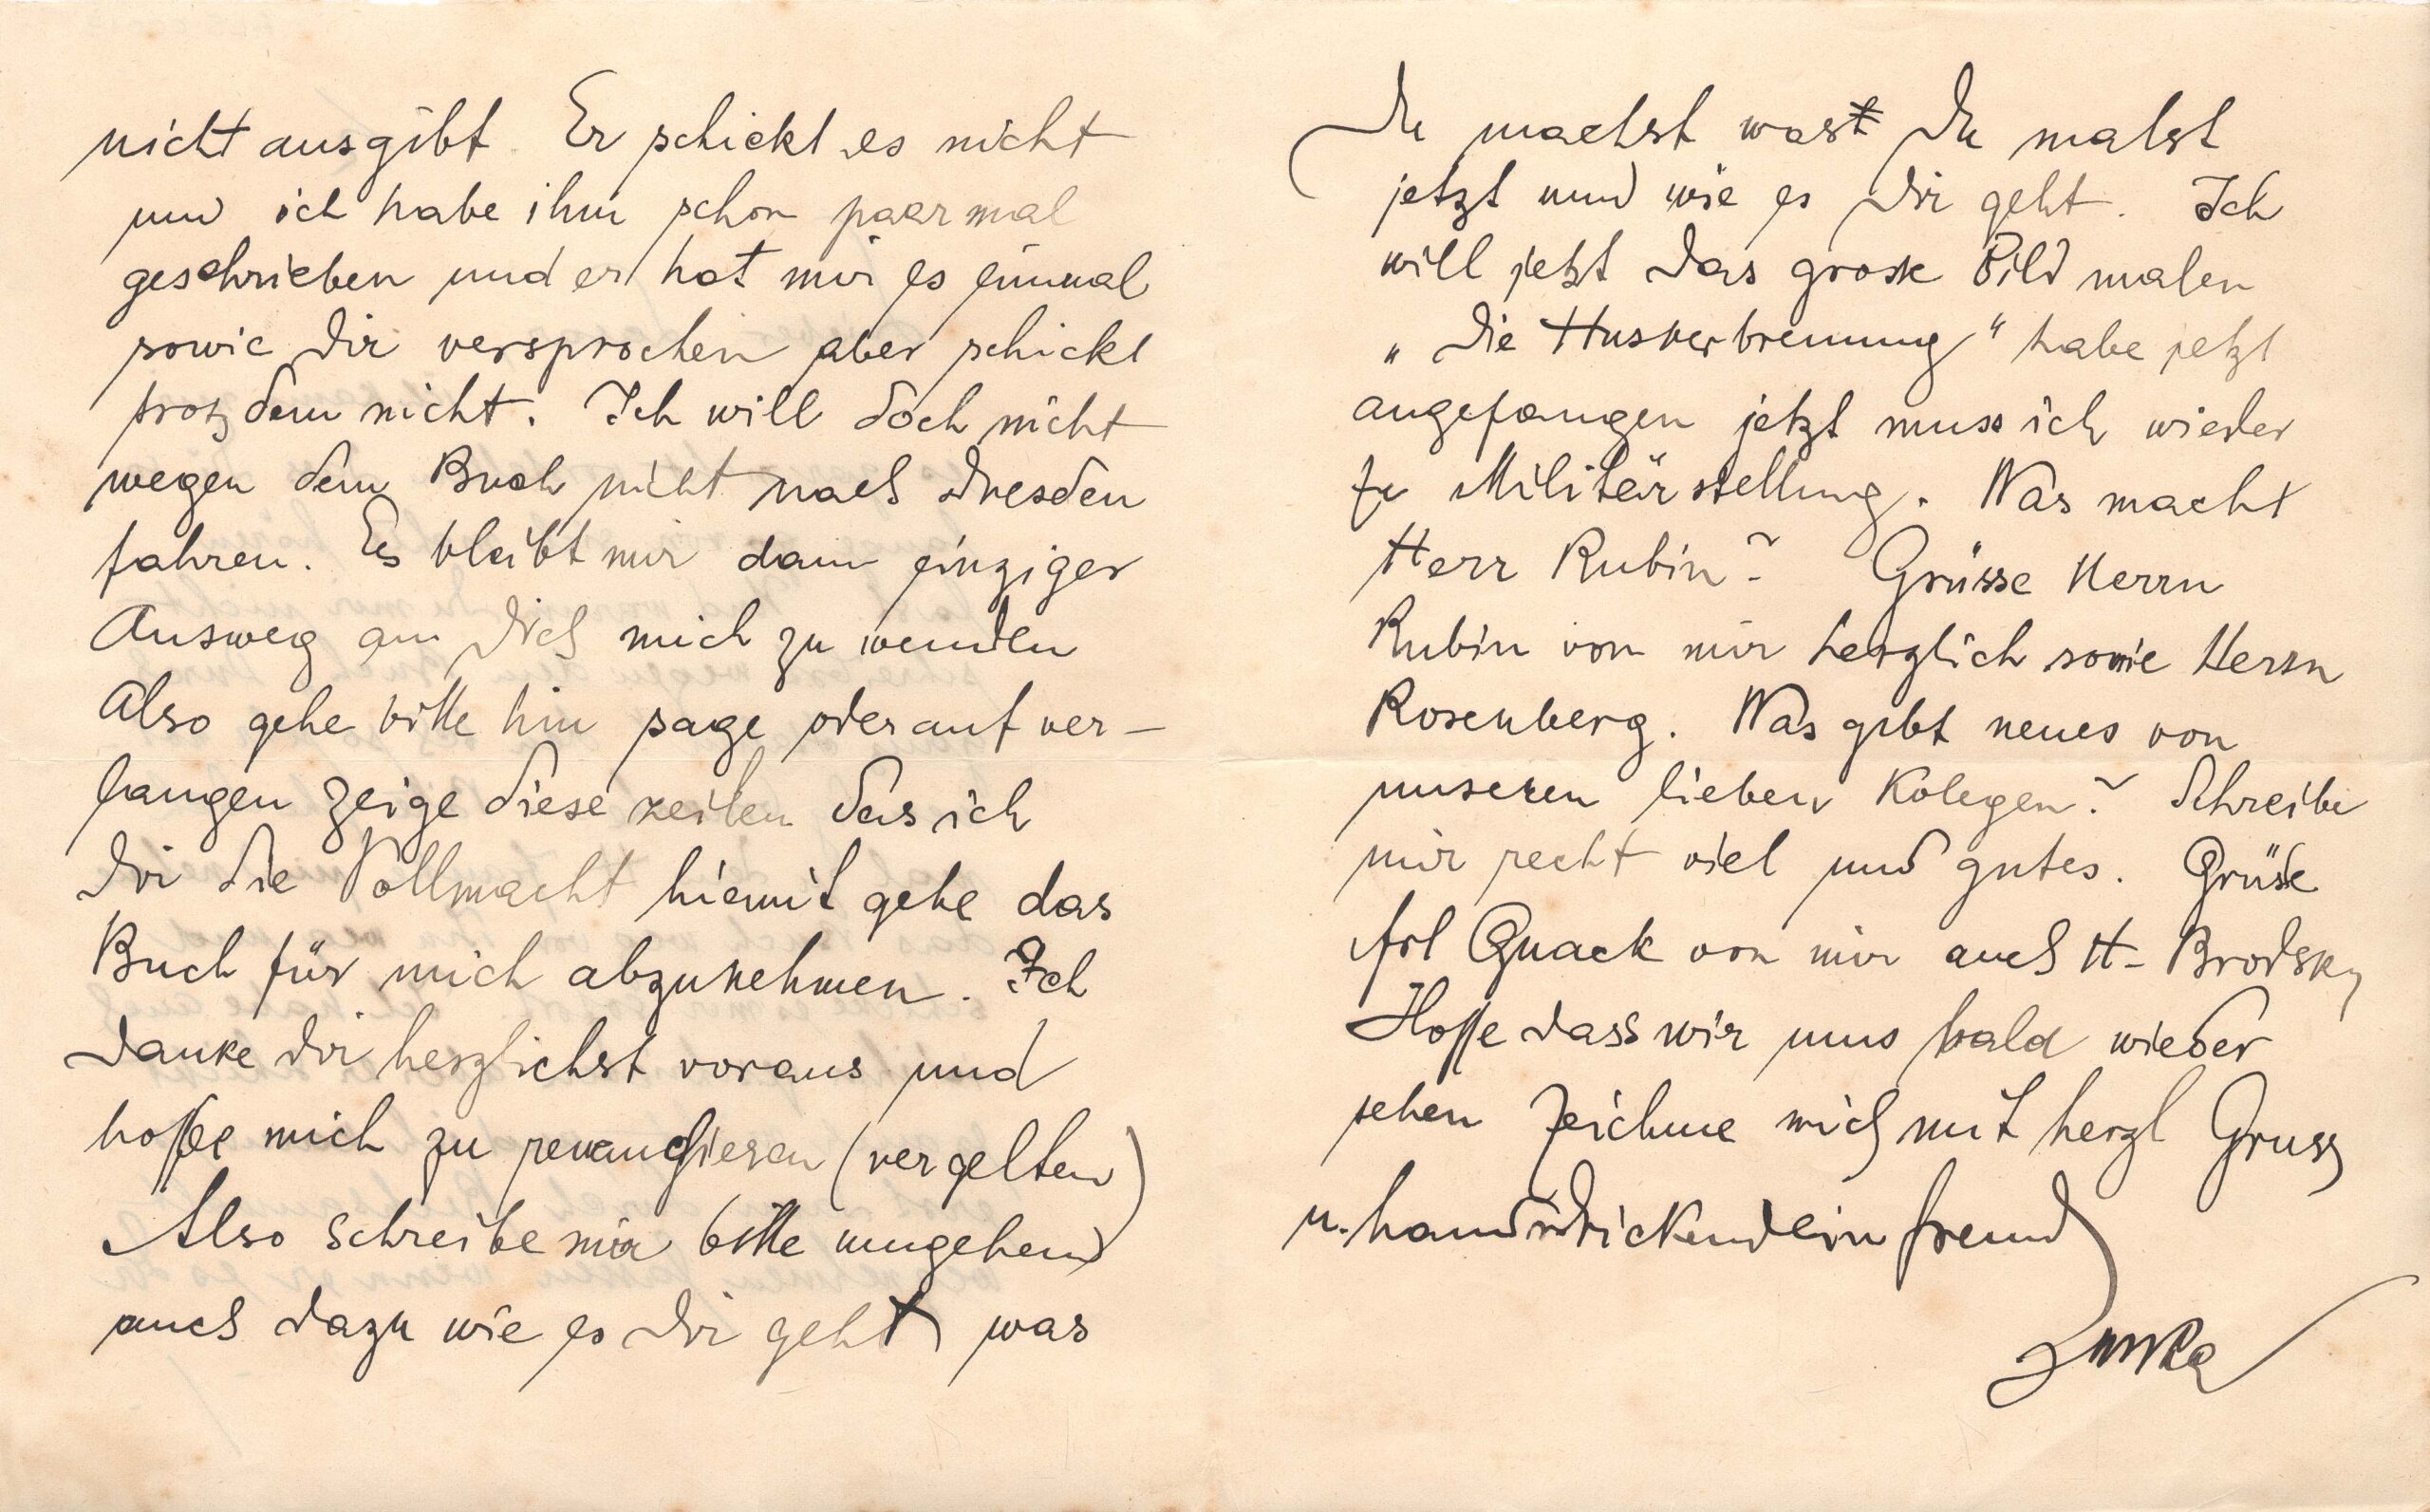 nicht ausgibt. Er schickt es nicht
und ich habe ihm schon paar mal
geschrieben und er hat mir es einmal
sowie Dir versprochen aber schickt
trotzdem nicht. Ich will doch nicht
wegen dem Buch nicht nach Dresden
fahren. Es bleibt mir dann einziger
Ausweg an Dich mich zu wenden
Also gehe bitte hin sage oder auf ver-
langen zeige diese zeilen das ich
Dir die Vollmacht hiemit gebe das
Buch für mich abzunehmen. Ich
danke Dir herzlichst voraus und
hoffe mich zu revanchieren (vergelten)
Also schreibe mir bitte umgehend
auch dazu wie es Dir geht was
Du machst was Du malst
jetzt und wie es Dir geht. Ich
will jetzt das grosse Bild malen
„Die Husverbrennung“ habe jetzt
angefangen jetzt muss ich wieder
zu Militärstellung. Was macht
Herr Rubin? Grüsse Herrn
Rubin von mir herzlich sowie Herrn
Rosenberg. Was gibt neues von
unseren lieben Kolegen? Schreibe
mir recht viel und gutes. Grüsse
Frl Quack von mir auch H. Brodsky
Hoffe dass wir uns bald wieder
sehen Zeichne mich mit herzl Gruss
u. handdrückend dein freund